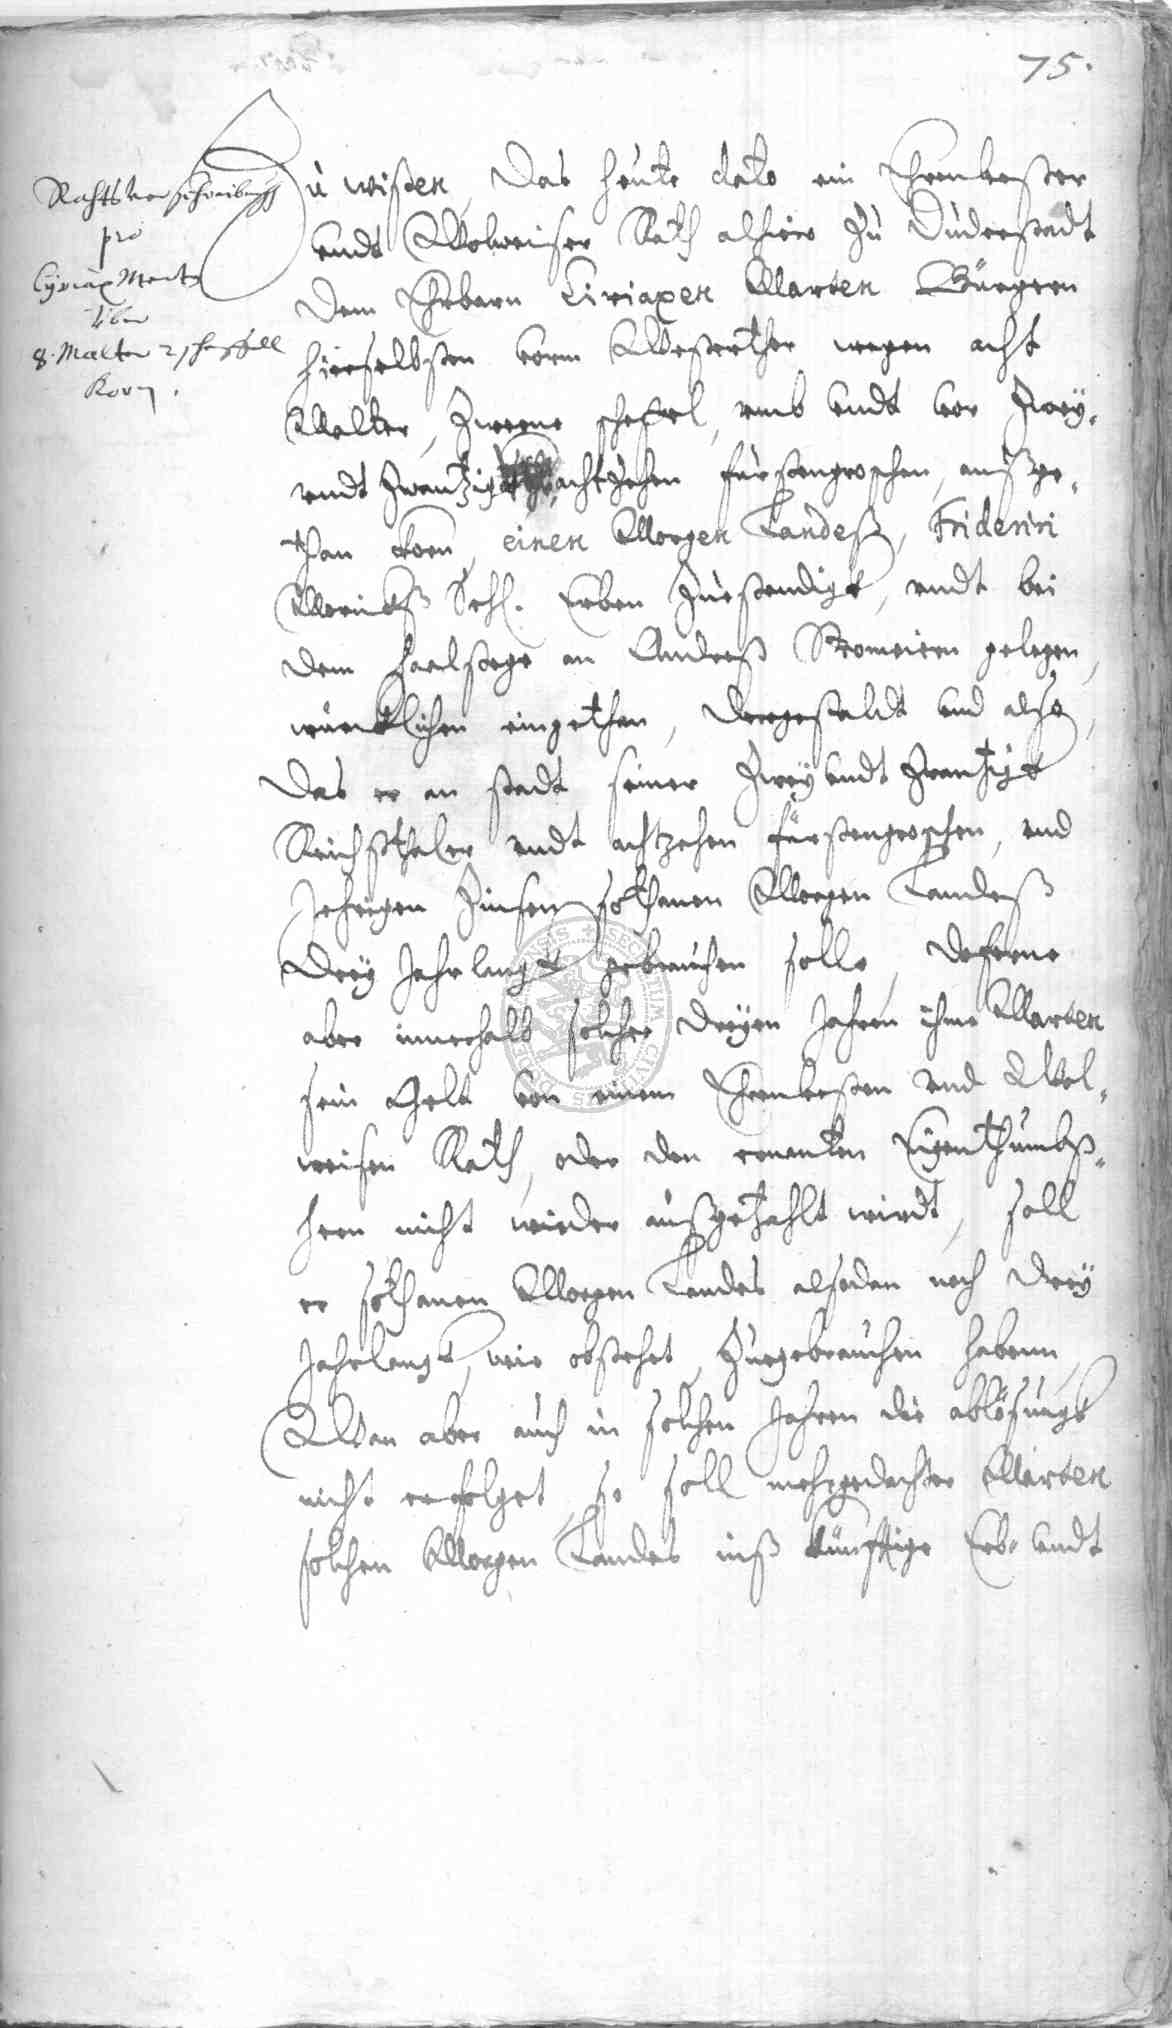 75.
Rahtsverschreibungh
pro
Cyriax Merten
über
8. Malter 2 scheffell
Korn.
Zu wißen, Das heute dato ein Ehrenvester
undt Wolweiser Rath alhier zu Duderstadt
dem Ehrbarn Ciriaxen Marten Bürgern
hierselbsten vorm Westerthor wegen acht
Malter, Zweene scheffel, umb undt vor Zwey-
undt Zwantzig achtzehen fürstengroschen, außge-
than Korn, einen Morgen Landeß, Friderici
Sehl. Erben Zuestendigk, undt bei
dem stege an Andreß Bromeiren gelegen,
würcklichen eingethan, dergestaldt und also,
das er an stadt seiner Zwey undt Zwantzigk
Reichsthaler undt achtzehen fürstengroschen, und
Jehrigen Zinsen sothanen Morgen Landeß
Drey Jahrlangk gebrauchen solle, Deferne
aber innerhalb solcher dreyen Jahren ihme Marten
sein Gelt von einem Ehrenvesten und Wol-
weisen Rath, oder den ernanten Eigenthumbß-
hern nicht wieder außgezahlt wirdt, soll
er sothanen Morgen Landes alsodan noch drey
Jahrlangk, wie obstehet, zuegebrauchen habenn,
Wan aber auch in solchen Jahren die ablösungk
nicht erfolget, so soll mehrgedachter Marten
solchen Morgen Landes inß künfftige Erb- undt